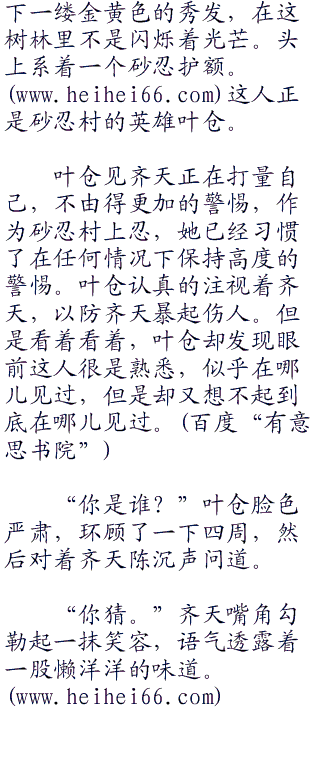 下一缕金黄色的秀发，在这
树林里不是闪烁着光芒。头
上系着一个砂忍护额。
(www.heihei66.com)这人正
是砂忍村的英雄叶仓。
叶仓见齐天正在打量自
己，不由得更加的警惕，作
为砂忍村上忍，她已经习惯
了在任何情况下保持高度的
警惕。叶仓认真的注视着齐
天，以防齐天暴起伤人。但
是看着看着，叶仓却发现眼
前这人很是熟悉，似乎在哪
儿见过，但是却又想不起到
底在哪儿见过。(百度“有意
思书院”)
“你是谁？”叶仓脸色
严肃，环顾了一下四周，然
后对着齐天陈沉声问道。
“你猜。”齐天嘴角勾
勒起一抹笑容，语气透露着
一股懒洋洋的味道。
(www.heihei66.com)